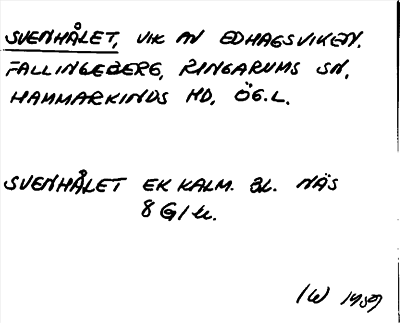 SVENHÅLET, VIK AV EDHAGSVIKEN.
FALLINGEBERG, RINGARUMS SN,
HAMMARKINDS HD, ÖG. L.
SVENHÅLET EK KALM. BL. NÄS
8 G/
IW 1959